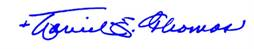 +Daniel E. Thomas